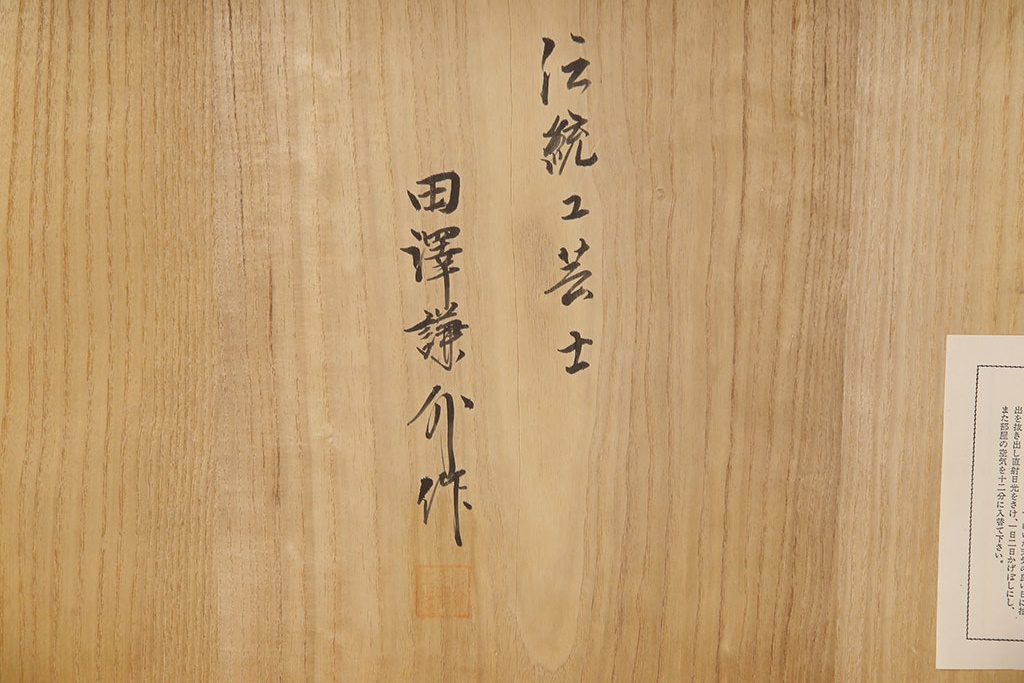 出を抜き出し直射日光をさけ、一日二日かげぼしにし、
また部屋の空気を十二分に入替て下さい。
伝統工芸士
田澤謙介作